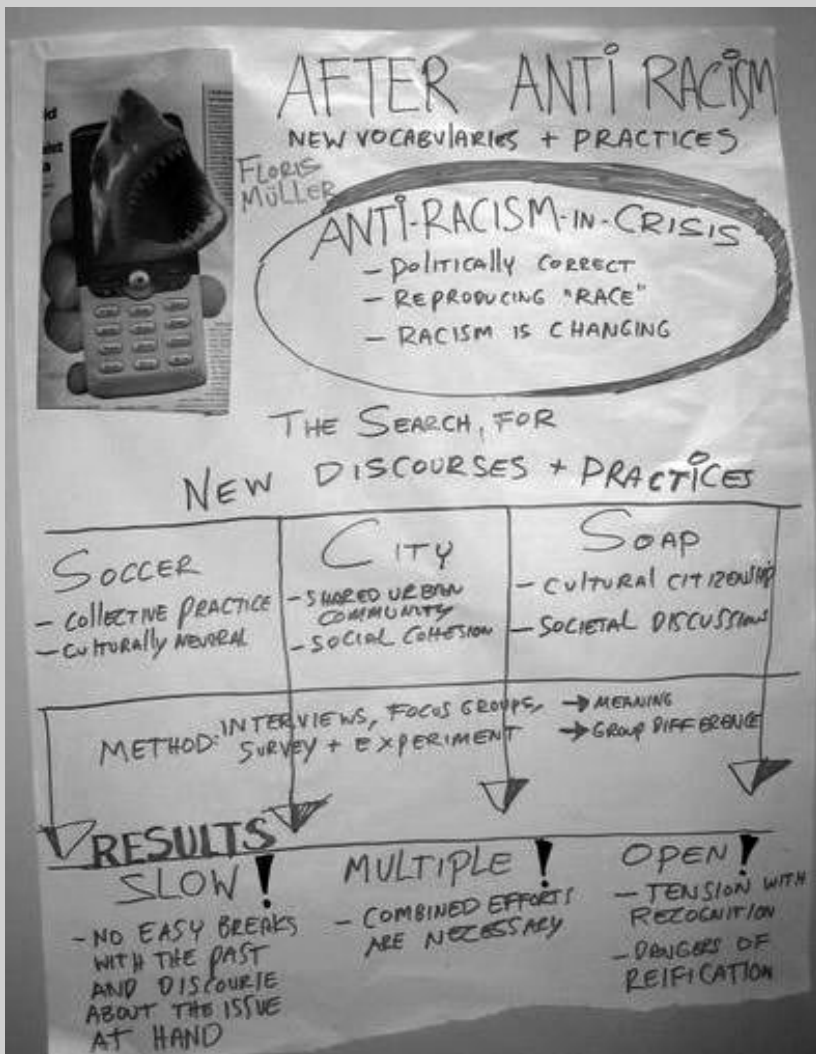 AFTER ANTI RACISM
NEW VOCABULARIES + PRACTICES
FLORIS
MÜLLER
ANTI-RACISM-IN-CRISIS
- POLITICALLY CORRECT
- REPRODUCING "RACE"
- RACISM IS CHANGING
THE SEARCH, FOR
NEW DISCOURSES + PRACTICES
SOCCER
- COLLECTIVE PRACTICE
- CULTURALLY NEUTRAL
CITY
- SHARED URBAN
COMMUNITY
- SOCIAL COHESION
SOAP
- CULTURAL CITIZENSHIP
- SOCIETAL DISCUSSIONS
METHOD: INTERVIEWS, FOCUS GROUPS,
SURVEY + EXPERIMENT
→ MEANING
→ GROUP DIFFERENCE
RESULTS
SLOW!
- NO EASY BREAKS
WITH THE PAST
AND DISCOURSE
ABOUT THE ISSUE
AT HAND
MULTIPLE!
- COMBINED EFFORTS
ARE NEZESSARY
OPEN!
- TENSION WITH
REZOGNITION
- DANGERS OF
REIFICATION